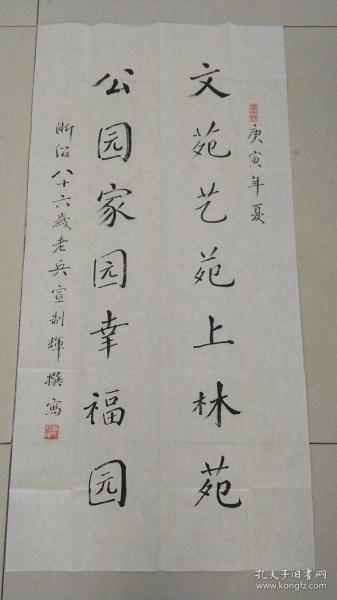 庚寅年夏
文苑艺苑上林苑
公园家园幸福园
浙绍八十六歲老兵宣制輝撰寫
孔夫子旧书网